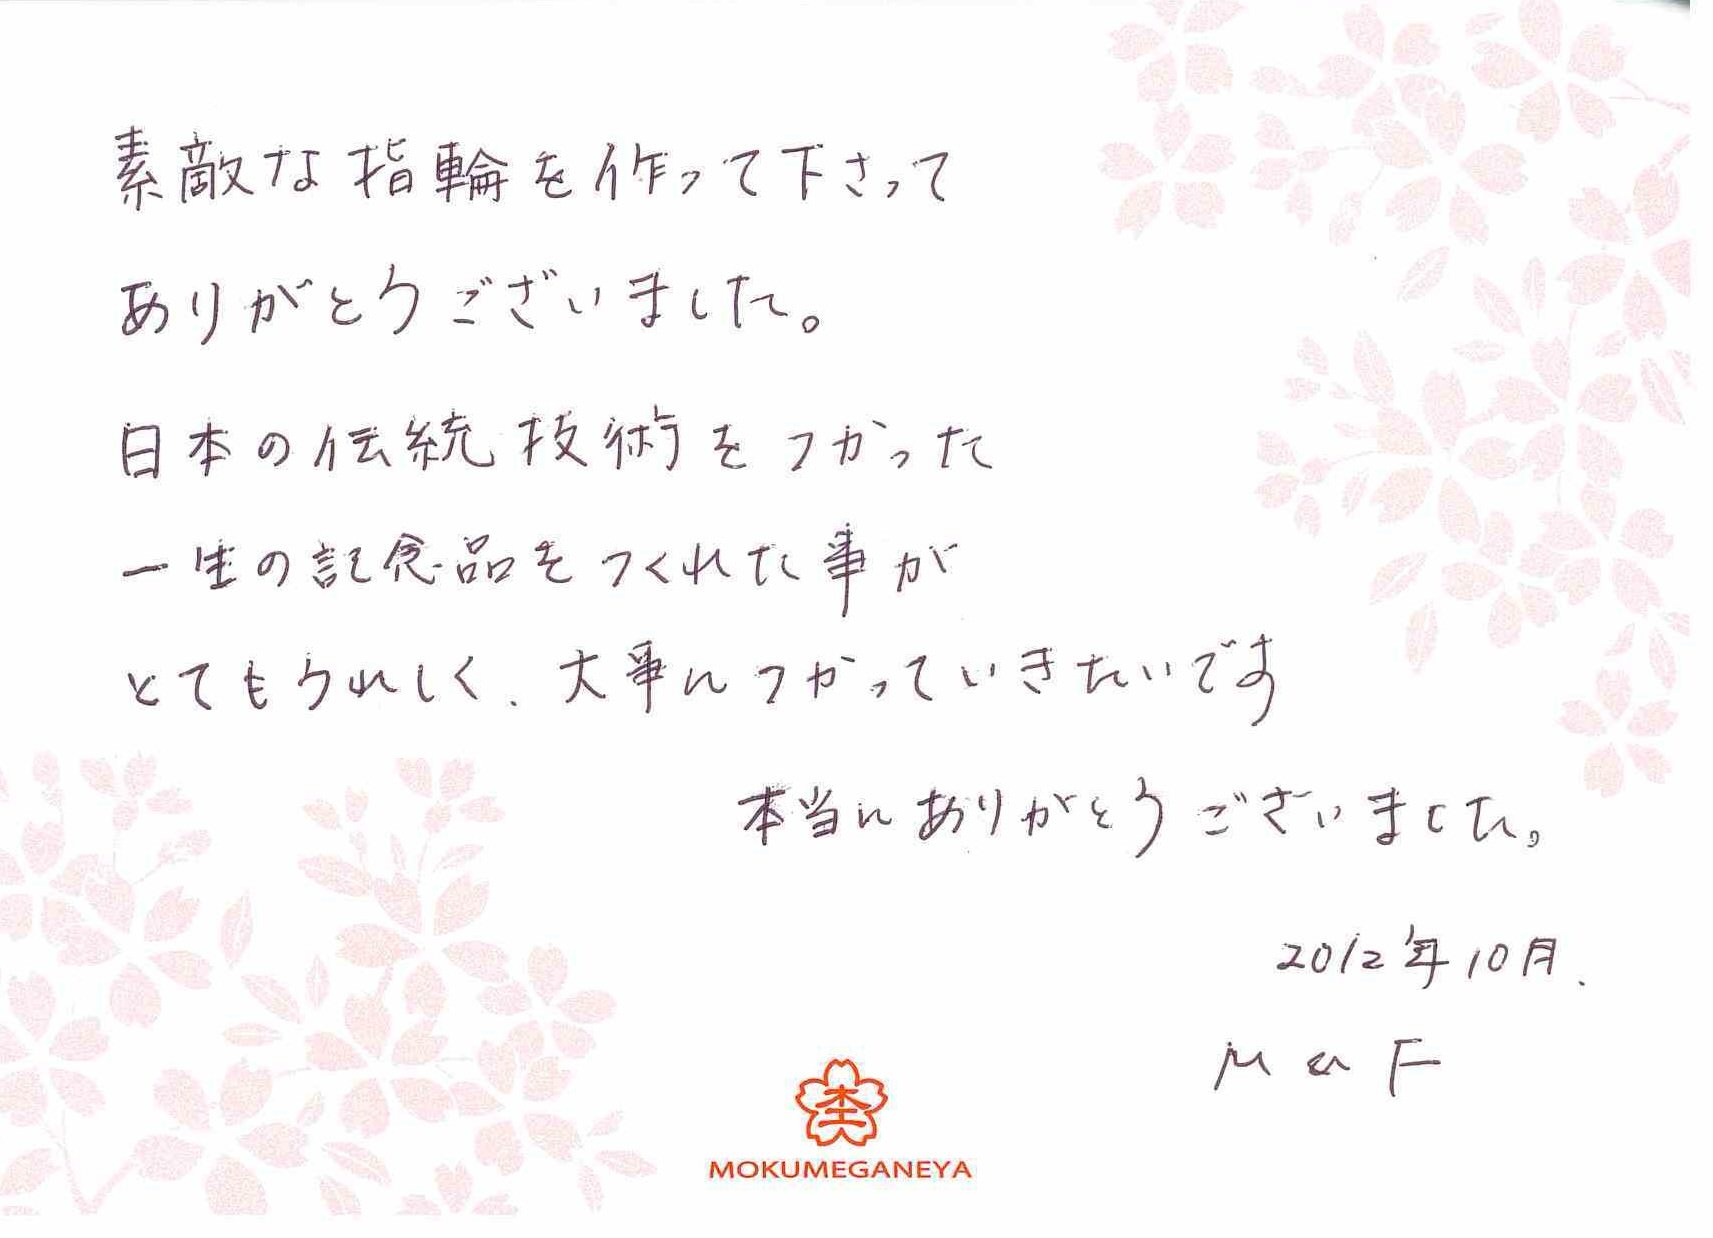 素敵な指輪を作って下さって
ありがとうございました。
日本の伝統技術をつかった
一生の記念品をつくれた事が
とてもうれしく、大事につかっていきたいです
本当にありがとうございました。
2012年10月.
M & F
MOKUMEGANEYA